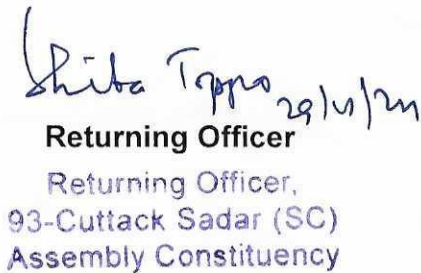 Shiba Toppo 29/4/24
Returning Officer
Returning Officer,
93-Cuttack Sadar (SC)
Assembly Constituency